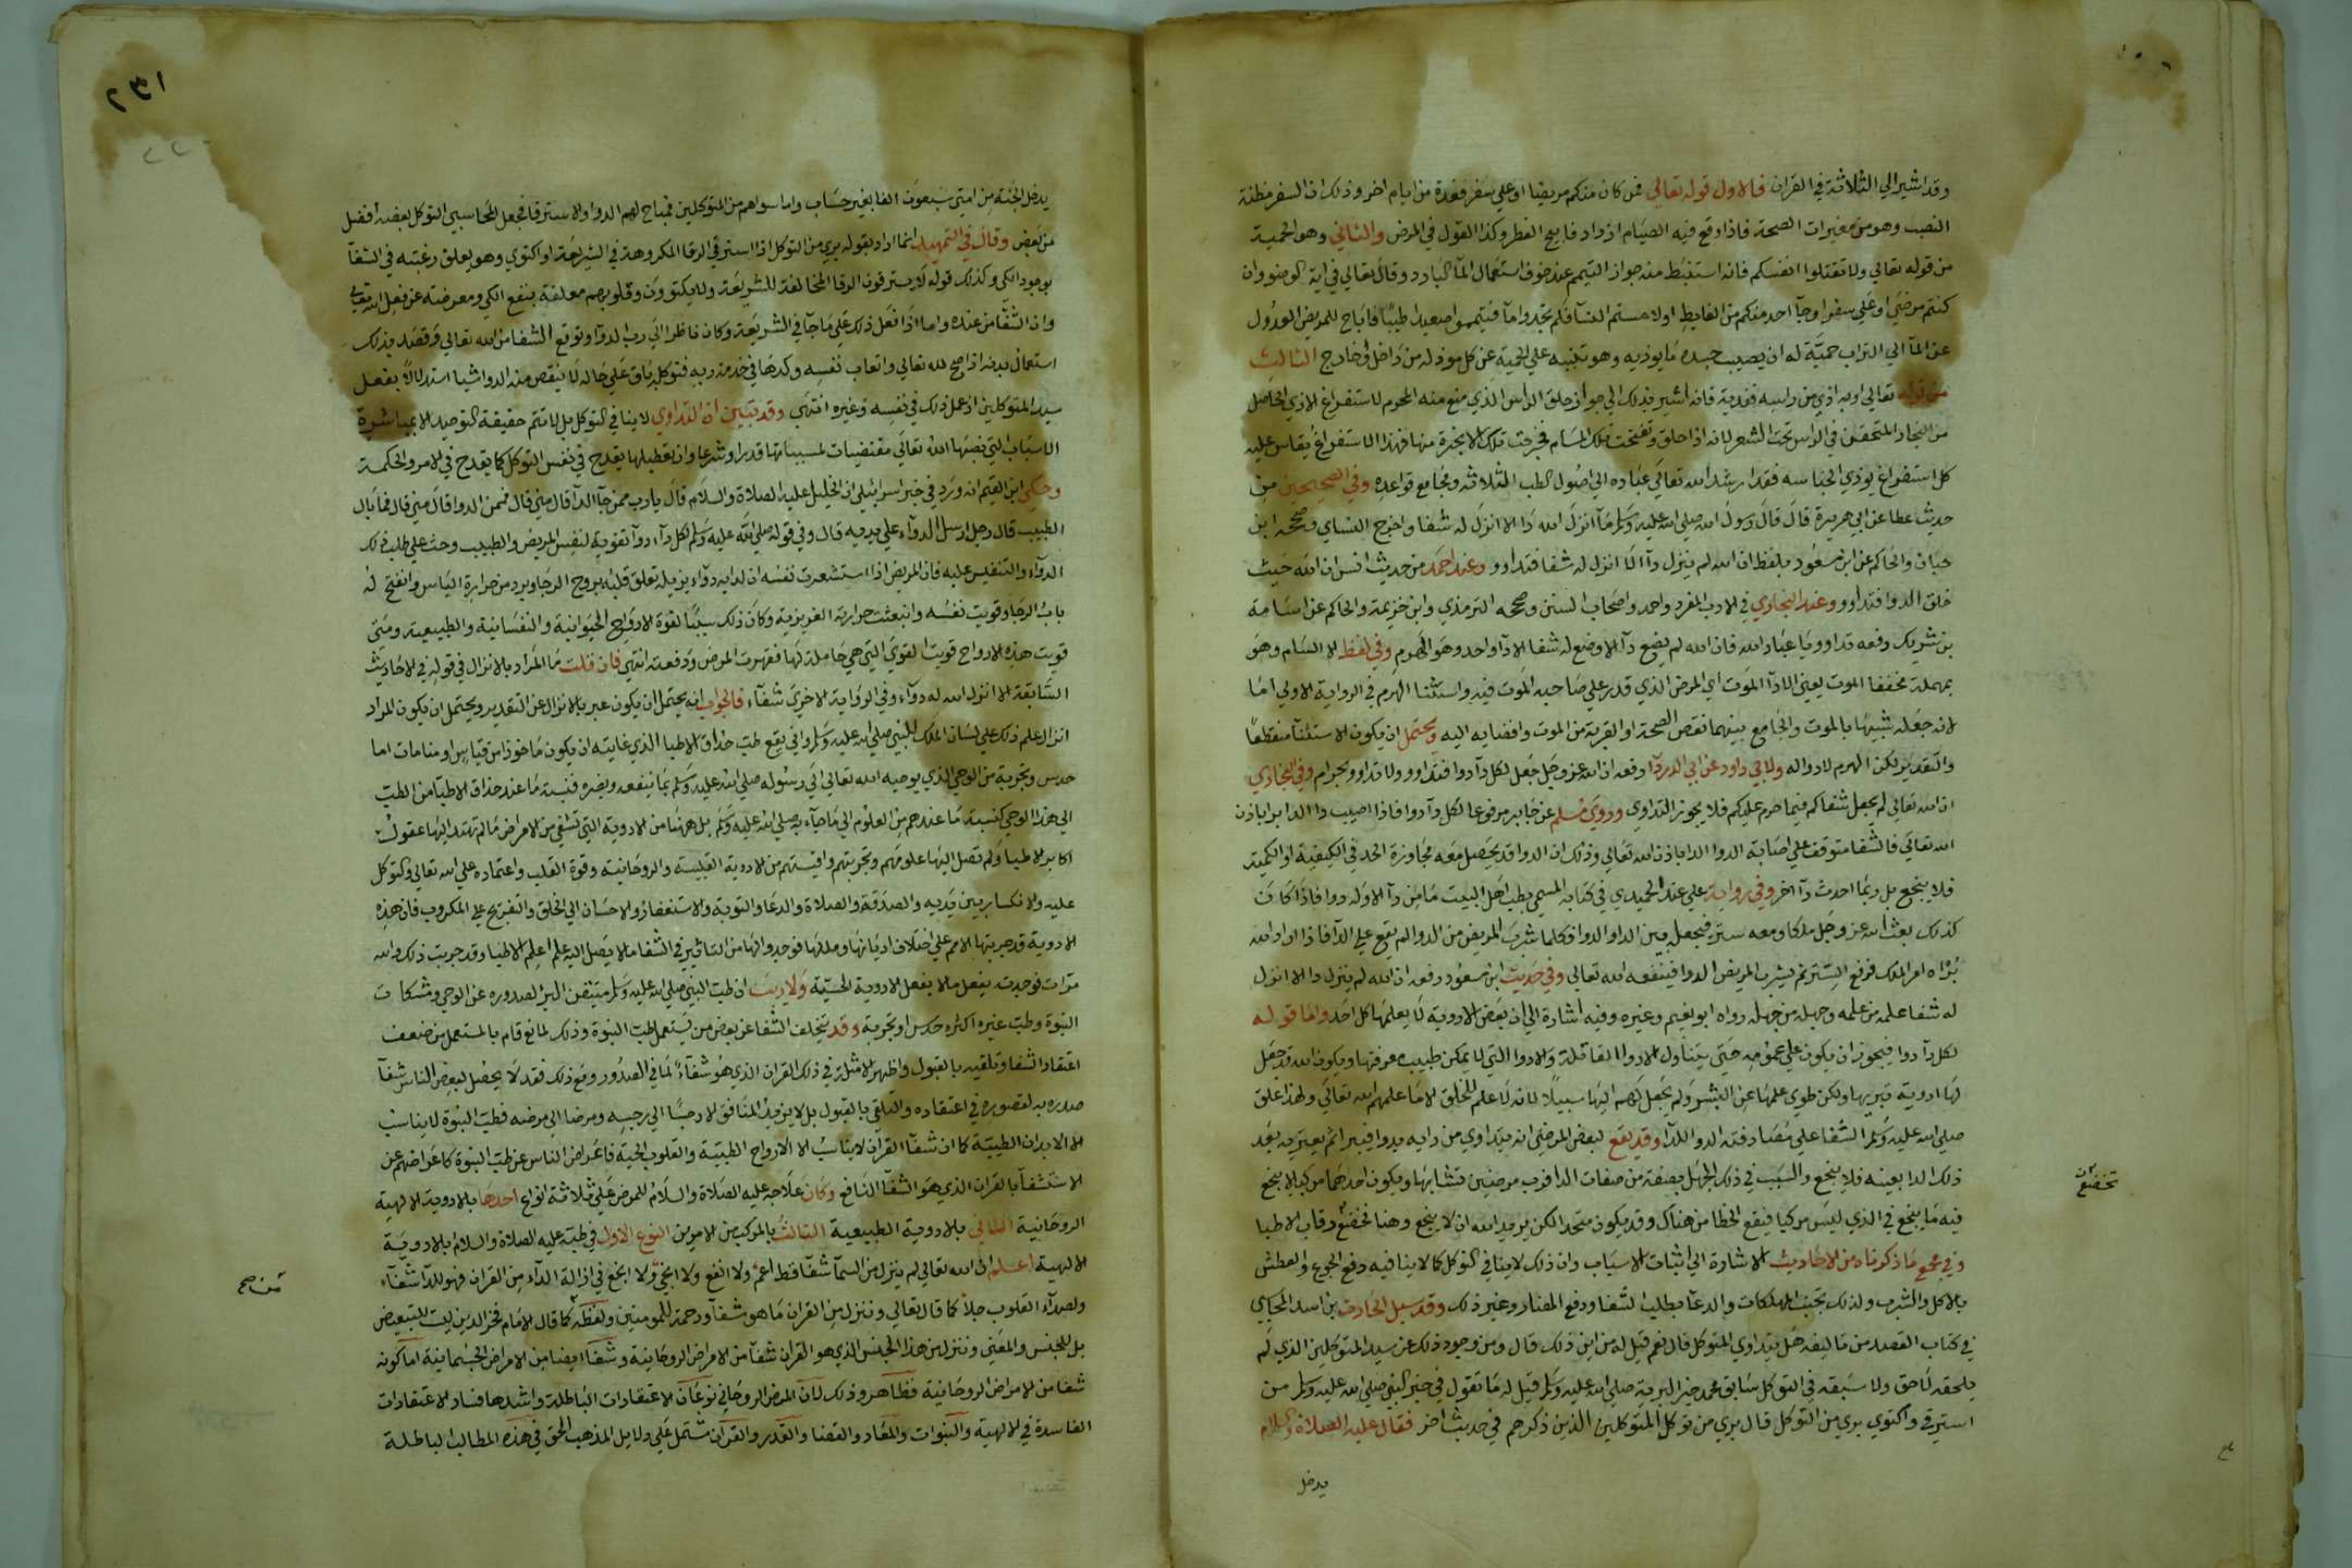 وقد اشير الي الثلاثة في القران فالاول قوله تعالي فمن كان منكم مريضا او علي سفر فعدة من ايام اخر وذلك ان السفر مظنة
النصب وهو من مغيرات الصحة فاذا وقع فيه الصيام ازداد فابيح الفطر وكذا القول في المرض والثاني وهو الحمية
من قوله تعالي ولا تقتلوا انفسكم فانه استنبط منه جواز التيمم عند خوف استعمال الما البارد وقال تعالي في اية الوضو وان
كنتم مرضي او علي سفر او جآ احد منكم من الغايط او لامستم النسآ فلم تجدوا مآ فتيمموا صعيدا طيبا فاباح للمريض العدول
عن المآ الي التراب حمية له ان يصيب جسده ما يوذيه وهو تنبيه علي الحمية عن كل موذ له من داخل او خارج الثالث
من قوله تعالي او به اذي من راسه ففدية فانه اشير بذلك الي جواز حلق الراس الذي منع منه المحرم لاستفراغ الاذي الحاصل
من البخار المحتقن في الراس تحت الشعر لانه اذا حلق وتفتحت تلك المسام فخرجت تلك الابخرة منها فهذا الاستفراغ يقاس عليه
كل استفراغ يوذي انحباسه فقد ارشد الله تعالي عباده الي اصول الطب الثلاثة ومجامع قواعده وفي الصحيحين من
حديث عطا عن ابي هريرة قال قال رسول الله صلي الله عليه وسلم ما انزل الله دا الا انزل له شفا واخرج النساي وصححه ابن
حبان والحاكم عن ابن مسعود بلفظ ان الله لم ينزل دآ الا انزل له شفا فتداووا وعند احمد من حديث انس ان الله حيث
خلق الدوا فتداووا وعند البخاري في الادب المفرد واحمد واصحاب السنن وصححه الترمذي وابن خزيمة والحاكم عن اسامة
بن شريك رفعه تداووا يا عباد الله فان الله لم يضع دآ الا وضع له شفا الا دآ واحد وهو الهرم وفي لفظ الا السام وهو
بمهملة مخففا الموت يعني الا دآ الموت اي المرض الذي قدر علي صاحبه الموت فيه واستثنا الهرم في الرواية الاولي اما
لانه جعله شبيها بالموت والجامع بينهما نقص الصحة او لقربه من الموت وافضايه اليه ويحتمل ان يكون الاستثنآ منقطعا
والتقدير لكن الهرم لا دوا له ولابي داود عن ابي الدردآ رفعه ان الله عز وجل جعل لكل دآ دوا فتداووا ولا تداووا بحرام وفي البخاري
ان الله تعالي لم يجعل شفاكم فيما حرم عليكم فلا يجوز التداوي وروي مسلم عن جابر مرفوعا لكل دآ دوا فاذا اصيب دوا الدا برا باذن
الله تعالي فالشفا متوقف علي اصابة الدوا الدا باذن الله تعالي وذلك ان الدوا قد يحصل معه مجاوزة الحد في الكيفية او الكمية
فلا ينجع بل ربما احدث دآ اخر وفي رواية علي عند الحميدي في كتابه المسمي بطب اهل البيت ما من دآ الا وله دوا فاذا كان
كذلك بعث الله عز وجل ملكا ومعه ستر فيجعله بين الدا والدوا فكلما شرب المريض من الدوا لم يقع علي الدآ فاذا اراد الله
براه امر الملك فرفع الستر ثم يشرب المريض الدوا فينفعه الله تعالي وفي حديث ابن مسعود رفعه ان الله لم ينزل دا الا انزل
له شفا علمه من علمه وجهله من جهله رواه ابو نعيم وغيره وفيه اشارة الي ان بعض الادوية لا يعلمها كل احد واما قوله
لكل دآ دوا فيجوز ان يكون علي عمومه حتي يتناول الادوا القاتلة والادوا التي لا يمكن طبيب معرفتها ويكون الله قد جعل
لها ادوية تبريها ولكن طوي علمها عن البشر ولم يجعل لهم اليها سبيلا لانه لا علم للخلق الا ما علمهم الله تعالي ولهذا علق
صلي الله عليه وسلم الشفا علي مصادفته الدوا للدآ وقد يقع لبعض المرضي انه يتداوي من دايه بدوا فيبرا ثم يعتريه بعد
ذلك الدا بعينه فلا ينجع والسبب في ذلك الجهل بصفة من صفات الدا فرب مرضين تشابها ويكون احدهما مركبا لا ينجع
فيه ما ينجع في الذي ليس مركبا فيقع الخطا من هناك وقد يكون متحدا لكن يريد الله ان لا ينجع وهنا تخضع رقاب الاطبا
وفي مجموع ما ذكرناه من الاحاديث الاشارة الي اثبات الاسباب وان ذلك لا ينافي التوكل كما لا ينافيه دفع الجوع والعطش
بالاكل والشرب ولذلك تجنب المهلكات والدعا بطلب الشفا ودفع المضار وغير ذلك وقد سيل الحارث بن اسد المحاسبي
في كتاب القصد من تاليفه هل يتداوي المتوكل قال نعم قيل له من اين ذلك قال من وجود ذلك عن سيد المتوكلين الذي لم
يلحقه لاحق ولا سبقه في التوكل سابق محمد خير البرية صلي الله عليه وسلم قيل له ما تقول في خبر النبي صلي الله عليه وسلم من
استرقي واكتوي بري من التوكل قال بري من توكل المتوكلين الذين ذكرهم في حديث اخر فقال عليه الصلاة والسلام
يدخل
تخضع
٢٣١
يدخل الجنة من امتي سبعون الفا بغير حساب واما سواهم من المتوكلين فمباح لهم الدوا والاسترقا فجعل المحاسبي التوكل بعضه افضل
من بعض وقال في التمهيد انما اراد بقوله بري من التوكل اذا استرقي الرقا المكروهة في الشريعة او اكتوي وهو يعلق رغبته في الشفآ
بوجود الكي وكذلك قوله لا يسترقون الرقا المخالفة للشريعة ولا يكتوون وقلوبهم معلقة بنفع الكي ومعرضة عن فعل الله تعالي
وان الشفا من عنده واما اذا فعل ذلك علي ما جآ في الشريعة وكان ناظرا الي رب الدوا وتوقع الشفا من الله تعالي وقصد بذلك
استعمال بدنه اذا صح لله تعالي واتعاب نفسه وكدها في خدمة ربه فتوكله باق علي حاله لا ينقص منه الدوا شيا استدلالا بفعل
سيد المتوكلين اذ عمل ذلك في نفسه وغيره انتهي وقد تبين ان التداوي لا ينافي التوكل بل لا تتم حقيقة التوحيد الا بمباشرة
الاسباب التي نصبها الله تعالي مقتضيات لمسبباتها قدرا وشرعا وان تعطيلها يقدح في نفس التوكل كما يقدح في الامر والحكمة
وحكي ابن القيم انه ورد في خبر اسرايلي ان الخليل عليه الصلاة والسلام قال يا رب ممن جآ الدآ قال مني قال فممن الدوا قال مني قال فما بال
الطبيب قال رجل ارسل الدوآء علي يديه قال وفي قوله صلي الله عليه وسلم لكل دآء دوآ تقوية لنفس المريض والطبيب وحث علي طلب ذلك
الدوآء والتفتيش عليه فان المريض اذا استشعرت نفسه ان لدايه دوآء يزيله تعلق قلبه بروح الرجا وبرد من حرارة الياس وانفتح له
باب الرجا وقويت نفسه وانبعثت حرارته الغريزية وكان ذلك سببا لقوة الارواح الحيوانية والنفسانية والطبيعية ومتي
قويت هذه الارواح قويت القوي التي هي حاملة لها فقهرت المرض ودفعته انتهي فان قلت ما المراد بالانزال في قوله في الاحاديث
السابقة الا انزل الله له دوآء وفي الرواية الاخري شفآء فالجواب انه يحتمل ان يكون عبر بالانزال عن التقدير ويحتمل ان يكون المراد
انزال علم ذلك علي لسان الملك للنبي صلي الله عليه وسلم واني يقع طب حذاق الاطبا الذي غايته ان يكون ماخوذا من قياس او منامات اما
حدس وتجربة من الوحي الذي يوحيه الله تعالي الي رسوله صلي الله عليه وسلم بما ينفعه ويضره فنسبة ما عند حذاق الاطبآ من الطب
الي هذا الوحي كنسبة ما عندهم من العلوم الي ما جآء به صلي الله عليه وسلم بل ههنا من الادوية التي تشفي من الامراض ما لم تهتد اليها عقول
اكابر الاطبا ولم تصل اليها علومهم وتجربتهم واقيستهم من الادوية القلبية والروحانية وقوة القلب واعتماده علي الله تعالي والتوكل
عليه والانكسار بين يديه والصدقة والصلاة والدعا والتوبة والاستغفار والاحسان الي الخلق والتفريج علي المكروب فان هذه
الادوية قد جربتها الامم علي اختلاف اديانها ومللها فوجدوا لها من التاثير في الشفا ما لا يصل اليه علم اعلم الاطبا وقد جربت ذلك والله
مرات فوجدته يفعل ما لا يفعل الادوية الحسية ولا ريب ان طب النبي صلي الله عليه وسلم متيقن البرا لصدوره عن الوحي ومشكاة
النبوة وطب غيره اكثره حدس او تجربة وقد يتخلف الشفا عن بعض من يستعمل طب النبوة وذلك لمانع قام بالمستعمل من ضعف
اعتقاد الشفا وتلقيه بالقبول واظهر الامثلة في ذلك القران الذي هو شفآء لما في الصدور ومع ذلك فقد لا يحصل لبعض الناس شفآ
صدره به لقصوره في اعتقاده والتلقي بالقبول بل لا يزيد المنافق الا رجسا الي رجسه ومرضا الي مرضه فطب النبوة لا يناسب
الا الابدان الطيبة كما ان شفآ القرآن لا يناسب الا الارواح الطيبة والقلوب الحية فاعراض الناس عن طب النبوة كاعراضهم عن
الاستشفآ بالقران الذي هو الشفآ النافع وكان علاجه عليه الصلاة والسلام للمرض علي ثلاثة انواع احدها بالادوية الالهية
الروحانية الثاني بالادوية الطبيعية الثالث بالمركب من الامرين النوع الاول في طبه عليه الصلاة والسلام بالادوية
الالهية اعلم ان الله تعالي لم ينزل من السمآ شفآ قط اعم ولا انفع ولا انجع في ازالة الدآء من القران فهو للدآ شفآء
ولصدآء القلوب جلا كما قال تعالي وننزل من القران ما هو شفآ ورحمة للمومنين ولفظة كما قال الامام فخر الدين ليست للتبعيض
بل للجنس والمعني وننزل من هذا الجنس الذي هو القران شفآ من الامراض الروحانية وشفآ ايضا من الامراض الجسمانية اما كونه
شفا من الامراض الروحانية فظاهر وذلك لان المرض الروحاني نوعان الاعتقادات الباطلة واشدها فساد الاعتقادات
الفاسدة في الالهية والنبوات والمعاد والقضا والقدر والقرآن مشتمل علي دلايل المذهب الحق في هذه المطالب الباطلة
من صح